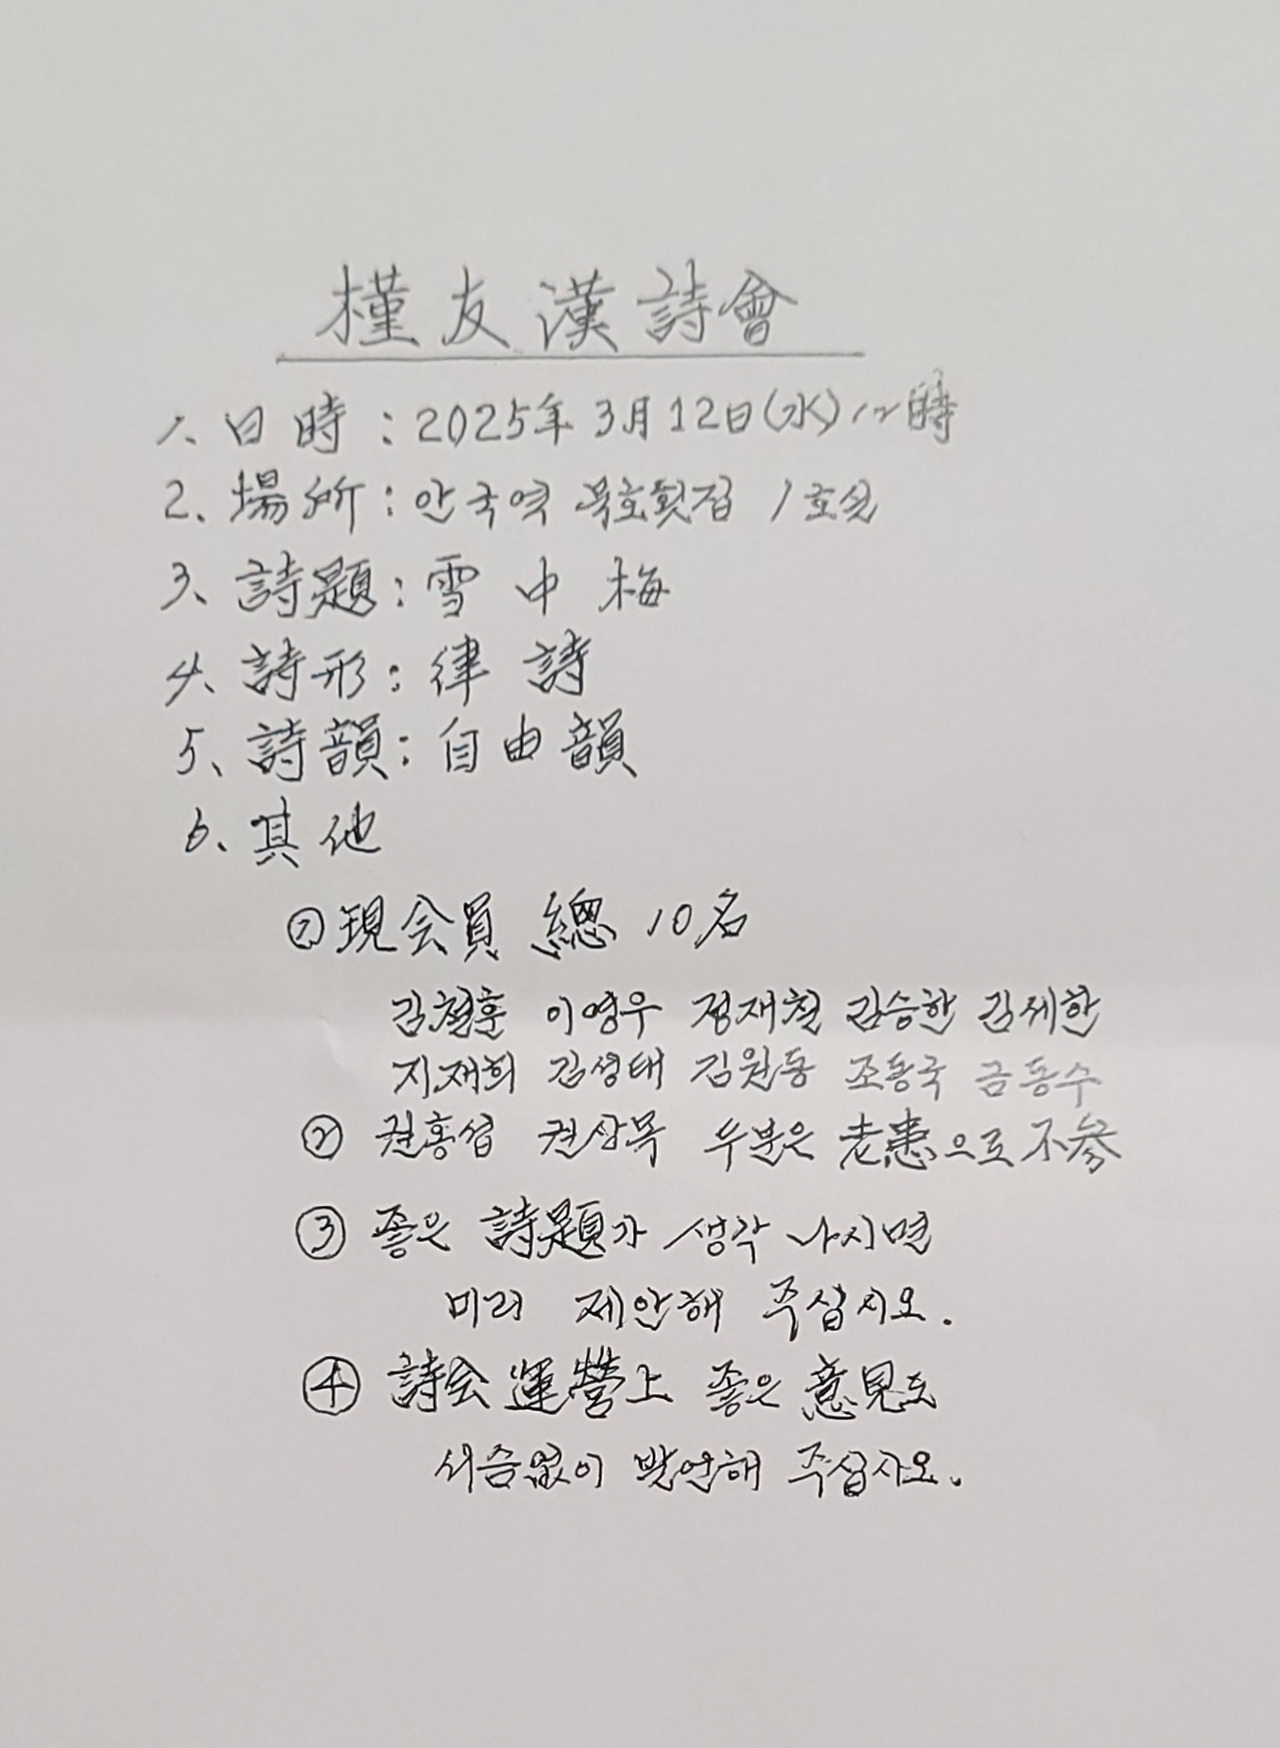 槿友漢詩會
1. 日時 : 2025年 3月 12日(水) 12時
2. 場所 : 안국역 목호횟집 1호실
3. 詩題 : 雪中梅
4. 詩形 : 律詩
5. 詩韻 : 自由韻
6. 其他
① 現会員 總 10名
김철훈 이영우 정재철 김승한 김제한
지재희 김성태 김원동 조동국 금동수
② 권홍섭 권상목 두분은 老患으로 不參
③ 좋은 詩題가 생각 나시면
미리 제안해 주십시오.
④ 詩会 運營上 좋은 意見도
서슴없이 발언해 주십시오.